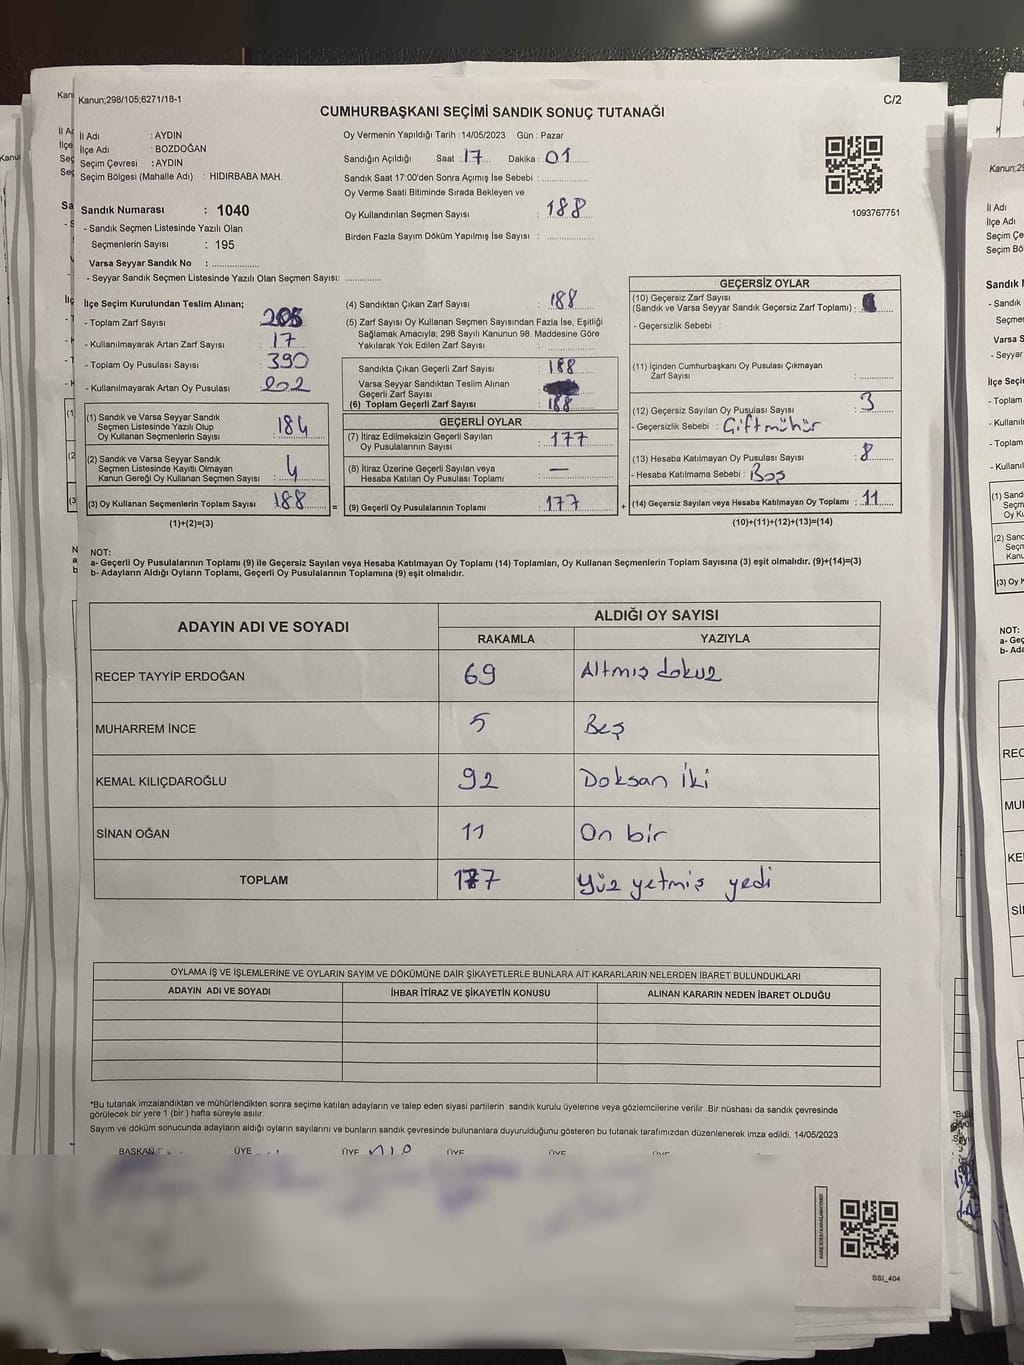 Kanun;298/105;6271/18-1
C/2
CUMHURBAŞKANI SEÇİMİ SANDIK SONUÇ TUTANAĞI
İl Adı : AYDIN
İlçe Adı : BOZDOĞAN
Seçim Çevresi : AYDIN
Seçim Bölgesi (Mahalle Adı) : HIDIRBABA MAH.
Sandık Numarası : 1040
- Sandık Seçmen Listesinde Yazılı Olan
Seçmenlerin Sayısı : 195
Varsa Seyyar Sandık No : ..............
- Seyyar Sandık Seçmen Listesinde Yazılı Olan Seçmen Sayısı: ............
Oy Vermenin Yapıldığı Tarih : 14/05/2023 Gün : Pazar
Sandığın Açıldığı Saat : 17 Dakika : 01
Sandık Saat 17:00'den Sonra Açımış İse Sebebi : ..............
Oy Verme Saati Bitiminde Sırada Bekleyen ve
Oy Kullandırılan Seçmen Sayısı : 188
Birden Fazla Sayım Döküm Yapılmış İse Sayısı : ..............
1093767751
İlçe Seçim Kurulundan Teslim Alınan;
- Toplam Zarf Sayısı : 205
- Kullanılmayarak Artan Zarf Sayısı : 17
- Toplam Oy Pusulası Sayısı : 390
- Kullanılmayarak Artan Oy Pusulası : 202
(1) Sandık ve Varsa Seyyar Sandık
Seçmen Listesinde Yazılı Olup
Oy Kullanan Seçmenlerin Sayısı : 184
(2) Sandık ve Varsa Seyyar Sandık
Seçmen Listesinde Kayıtlı Olmayan
Kanun Gereği Oy Kullanan Seçmen Sayısı : 4
(3) Oy Kullanan Seçmenlerin Toplam Sayısı : 188
(1)+(2)=(3)
(4) Sandıktan Çıkan Zarf Sayısı : 188
(5) Zarf Sayısı Oy Kullanan Seçmen Sayısından Fazla İse, Eşitliği
Sağlamak Amacıyla; 298 Sayılı Kanunun 98. Maddesine Göre
Yakılarak Yok Edilen Zarf Sayısı : ..............
Sandıkta Çıkan Geçerli Zarf Sayısı : 188
Varsa Seyyar Sandıktan Teslim Alınan
Geçerli Zarf Sayısı
(6) Toplam Geçerli Zarf Sayısı : 188
GEÇERLİ OYLAR
(7) İtiraz Edilmeksizin Geçerli Sayılan
Oy Pusulalarının Sayısı : 177
(8) İtiraz Üzerine Geçerli Sayılan veya
Hesaba Katılan Oy Pusulası Toplamı : —
= (9) Geçerli Oy Pusulalarının Toplamı : 177
GEÇERSİZ OYLAR
(10) Geçersiz Zarf Sayısı
(Sandık ve Varsa Seyyar Sandık Geçersiz Zarf Toplamı) :
- Geçersizlik Sebebi :
(11) İçinden Cumhurbaşkanı Oy Pusulası Çıkmayan
Zarf Sayısı : ............
(12) Geçersiz Sayılan Oy Pusulası Sayısı : 3
- Geçersizlik Sebebi : Çift mühür
(13) Hesaba Katılmayan Oy Pusulası Sayısı : 8
- Hesaba Katılmama Sebebi : Boş
+ (14) Geçersiz Sayılan veya Hesaba Katılmayan Oy Toplamı : 11
(10)+(11)+(12)+(13)=(14)
NOT:
a- Geçerli Oy Pusulalarının Toplamı (9) ile Geçersiz Sayılan veya Hesaba Katılmayan Oy Toplamı (14) Toplamları, Oy Kullanan Seçmenlerin Toplam Sayısına (3) eşit olmalıdır. (9)+(14)=(3)
b- Adayların Aldığı Oyların Toplamı, Geçerli Oy Pusulalarının Toplamına (9) eşit olmalıdır.
ADAYIN ADI VE SOYADI
ALDIĞI OY SAYISI
RAKAMLA YAZIYLA
RECEP TAYYİP ERDOĞAN 69 Altmış dokuz
MUHARREM İNCE 5 Beş
KEMAL KILIÇDAROĞLU 92 Doksan iki
SİNAN OĞAN 11 On bir
TOPLAM 177 Yüz yetmiş yedi
OYLAMA İŞ VE İŞLEMLERİNE VE OYLARIN SAYIM VE DÖKÜMÜNE DAİR ŞİKAYETLERLE BUNLARA AİT KARARLARIN NELERDEN İBARET BULUNDUKLARI
ADAYIN ADI VE SOYADI İHBAR İTİRAZ VE ŞİKAYETİN KONUSU ALINAN KARARIN NEDEN İBARET OLDUĞU
*Bu tutanak imzalandıktan ve mühürlendikten sonra seçime katılan adayların ve talep eden siyasi partilerin sandık kurulu üyelerine veya gözlemcilerine verilir .Bir nüshası da sandık çevresinde
görülecek bir yere 1 (bir ) hafta süreyle asılır.
Sayım ve döküm sonucunda adayların aldığı oyların sayılarını ve bunların sandık çevresinde bulunanlara duyurulduğunu gösteren bu tutanak tarafımızdan düzenlenerek imza edildi. 14/05/2023
BAŞKAN ÜYE ÜYE ÜYE ÜYE
SSI_404